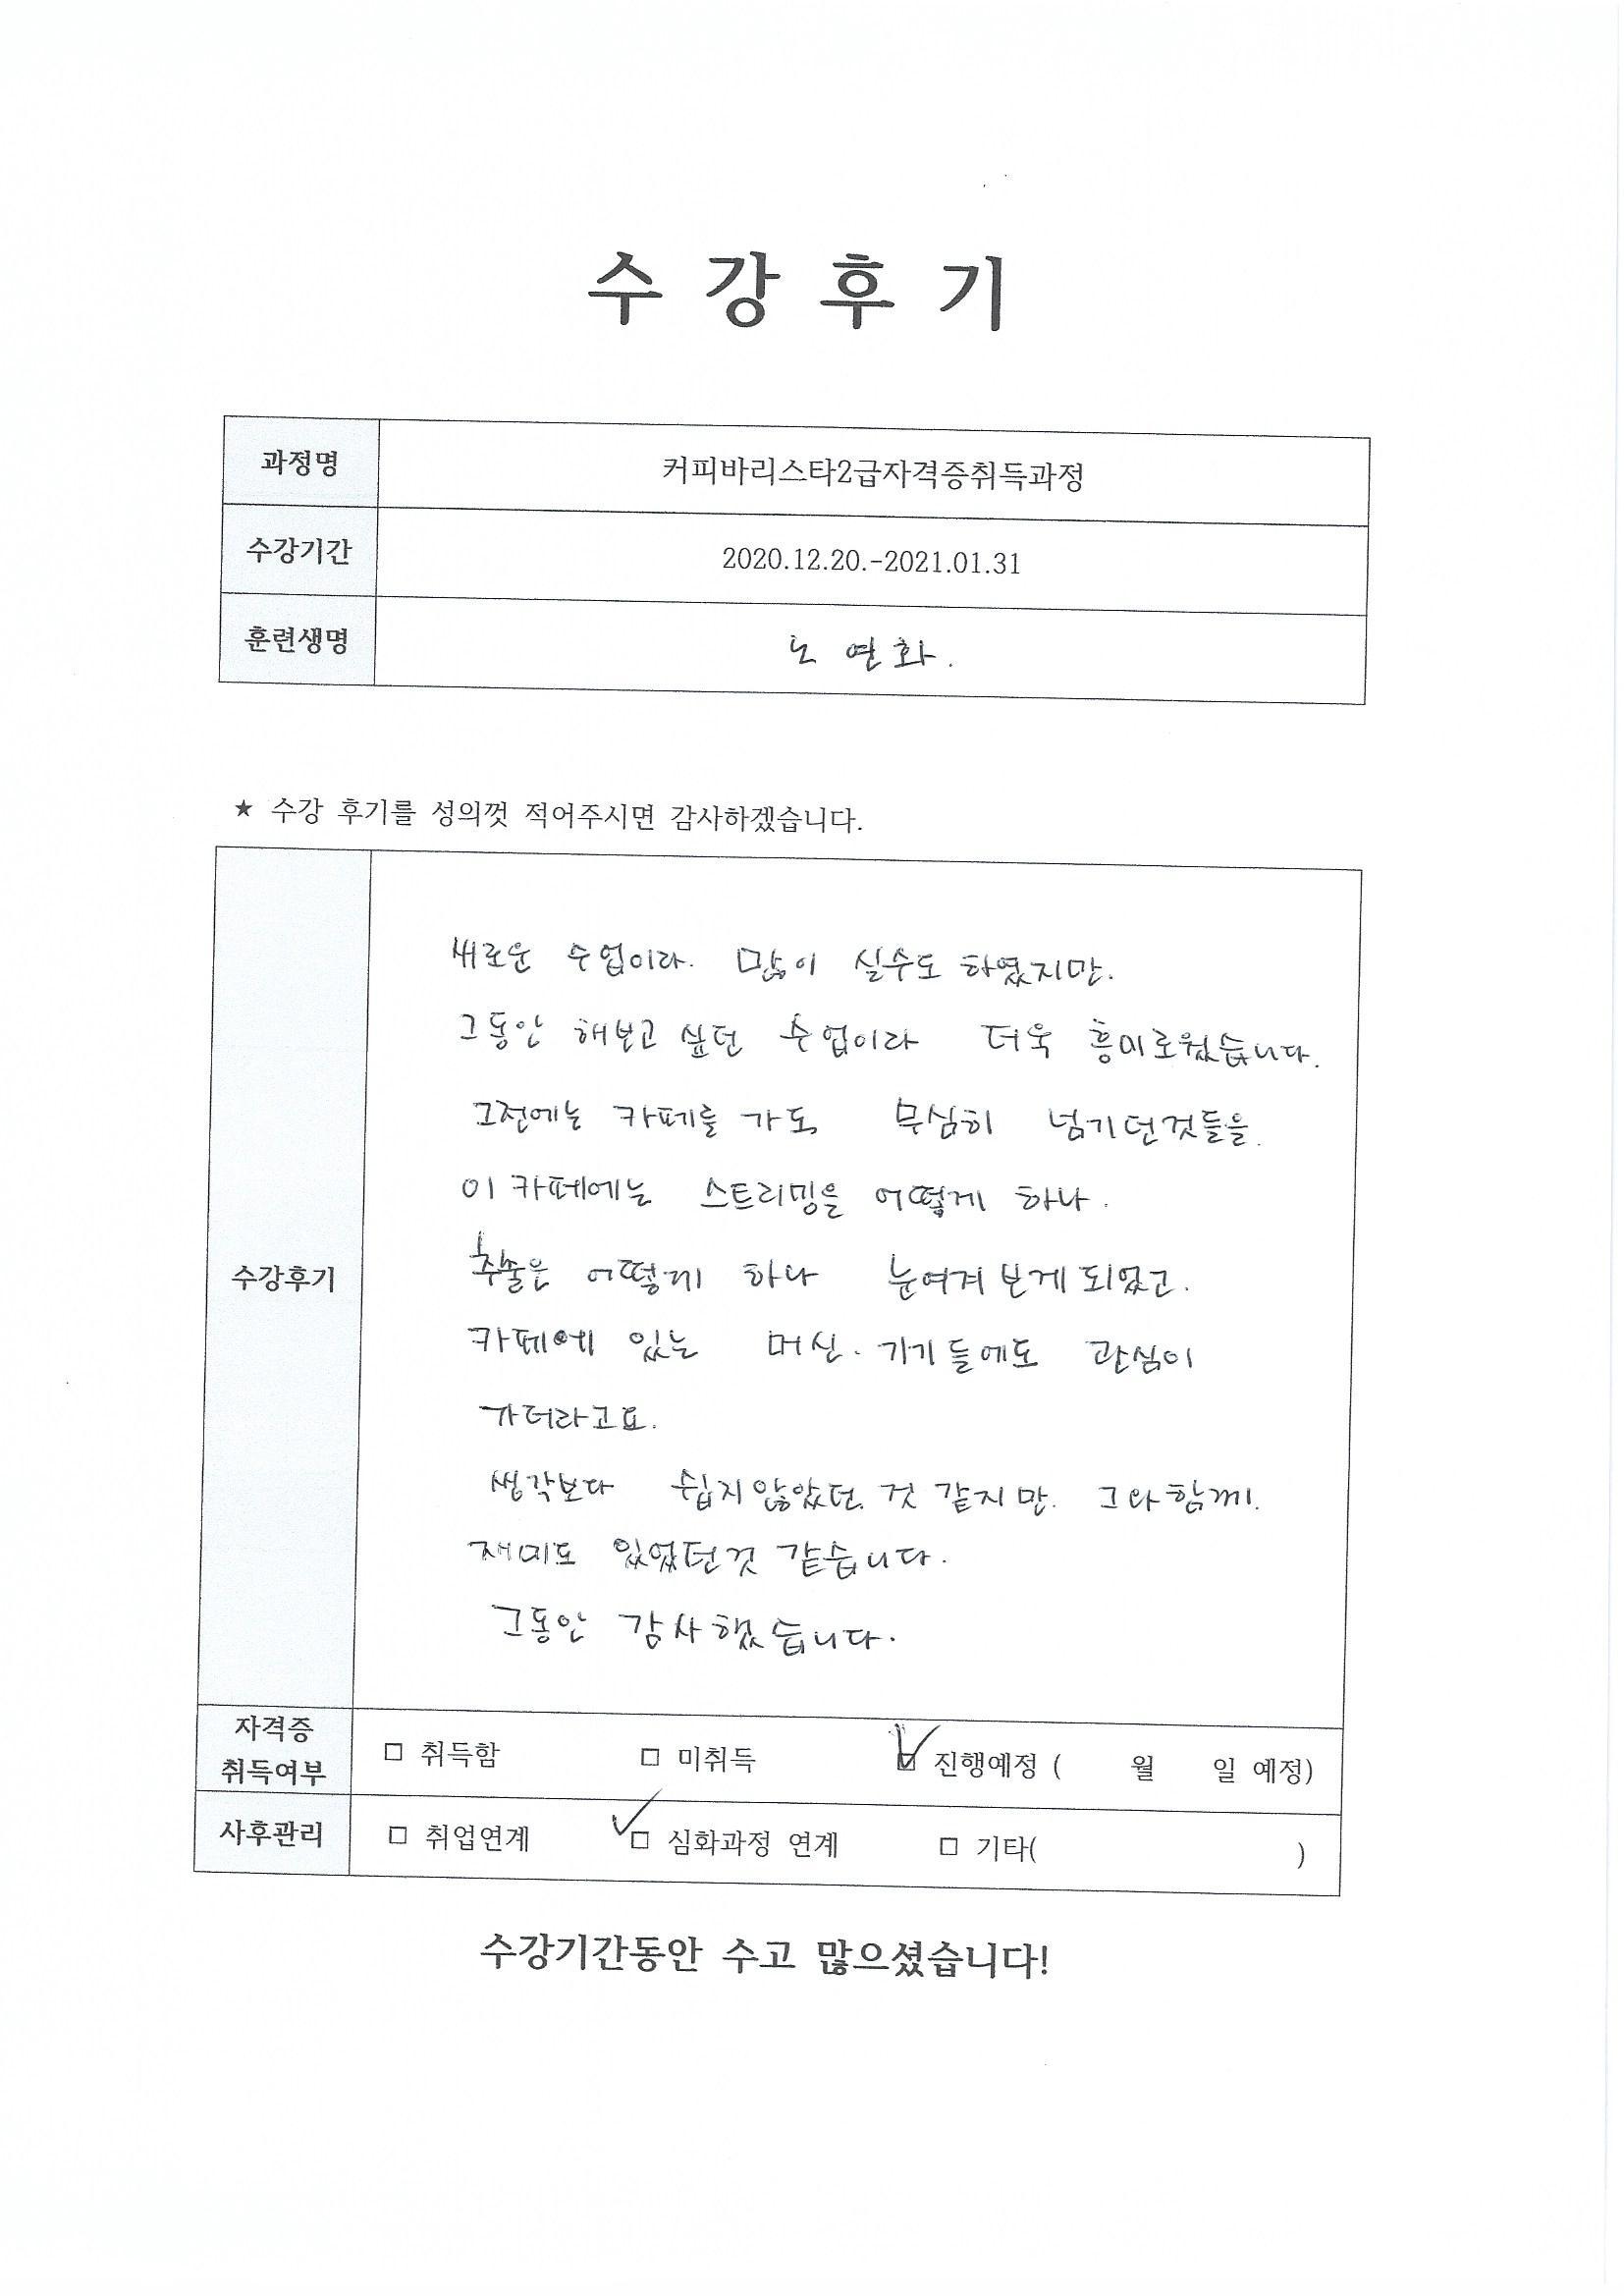 수 강 후 기
과정명 커피바리스타2급자격증취득과정
수강기간 2020.12.20.-2021.01.31
훈련생명 노 연화.
★ 수강 후기를 성의껏 적어주시면 감사하겠습니다.
새로운 수업이라. 많이 실수도 하였지만.
그동안 해보고 싶던 수업이라 더욱 흥미로웠습니다.
그전에는 카페를 가도 무심히 넘기던것들을.
이 카페에는 스트리밍을 어떻게 하나.
추출은 어떻게 하나 눈여겨 보게 되었고.
수강후기
카페에 있는 머신. 기기들에도 관심이
가더라고요.
생각보다 쉽지 않았던 것 같지만. 그와 함께.
재미도 있었던것 같습니다.
그동안 감사했습니다.
자격증 취득여부 □ 취득함 □ 미취득 ☑ 진행예정 ( 월 일 예정)
사후관리 □ 취업연계 ☑ 심화과정 연계 □ 기타( )
수강기간동안 수고 많으셨습니다!